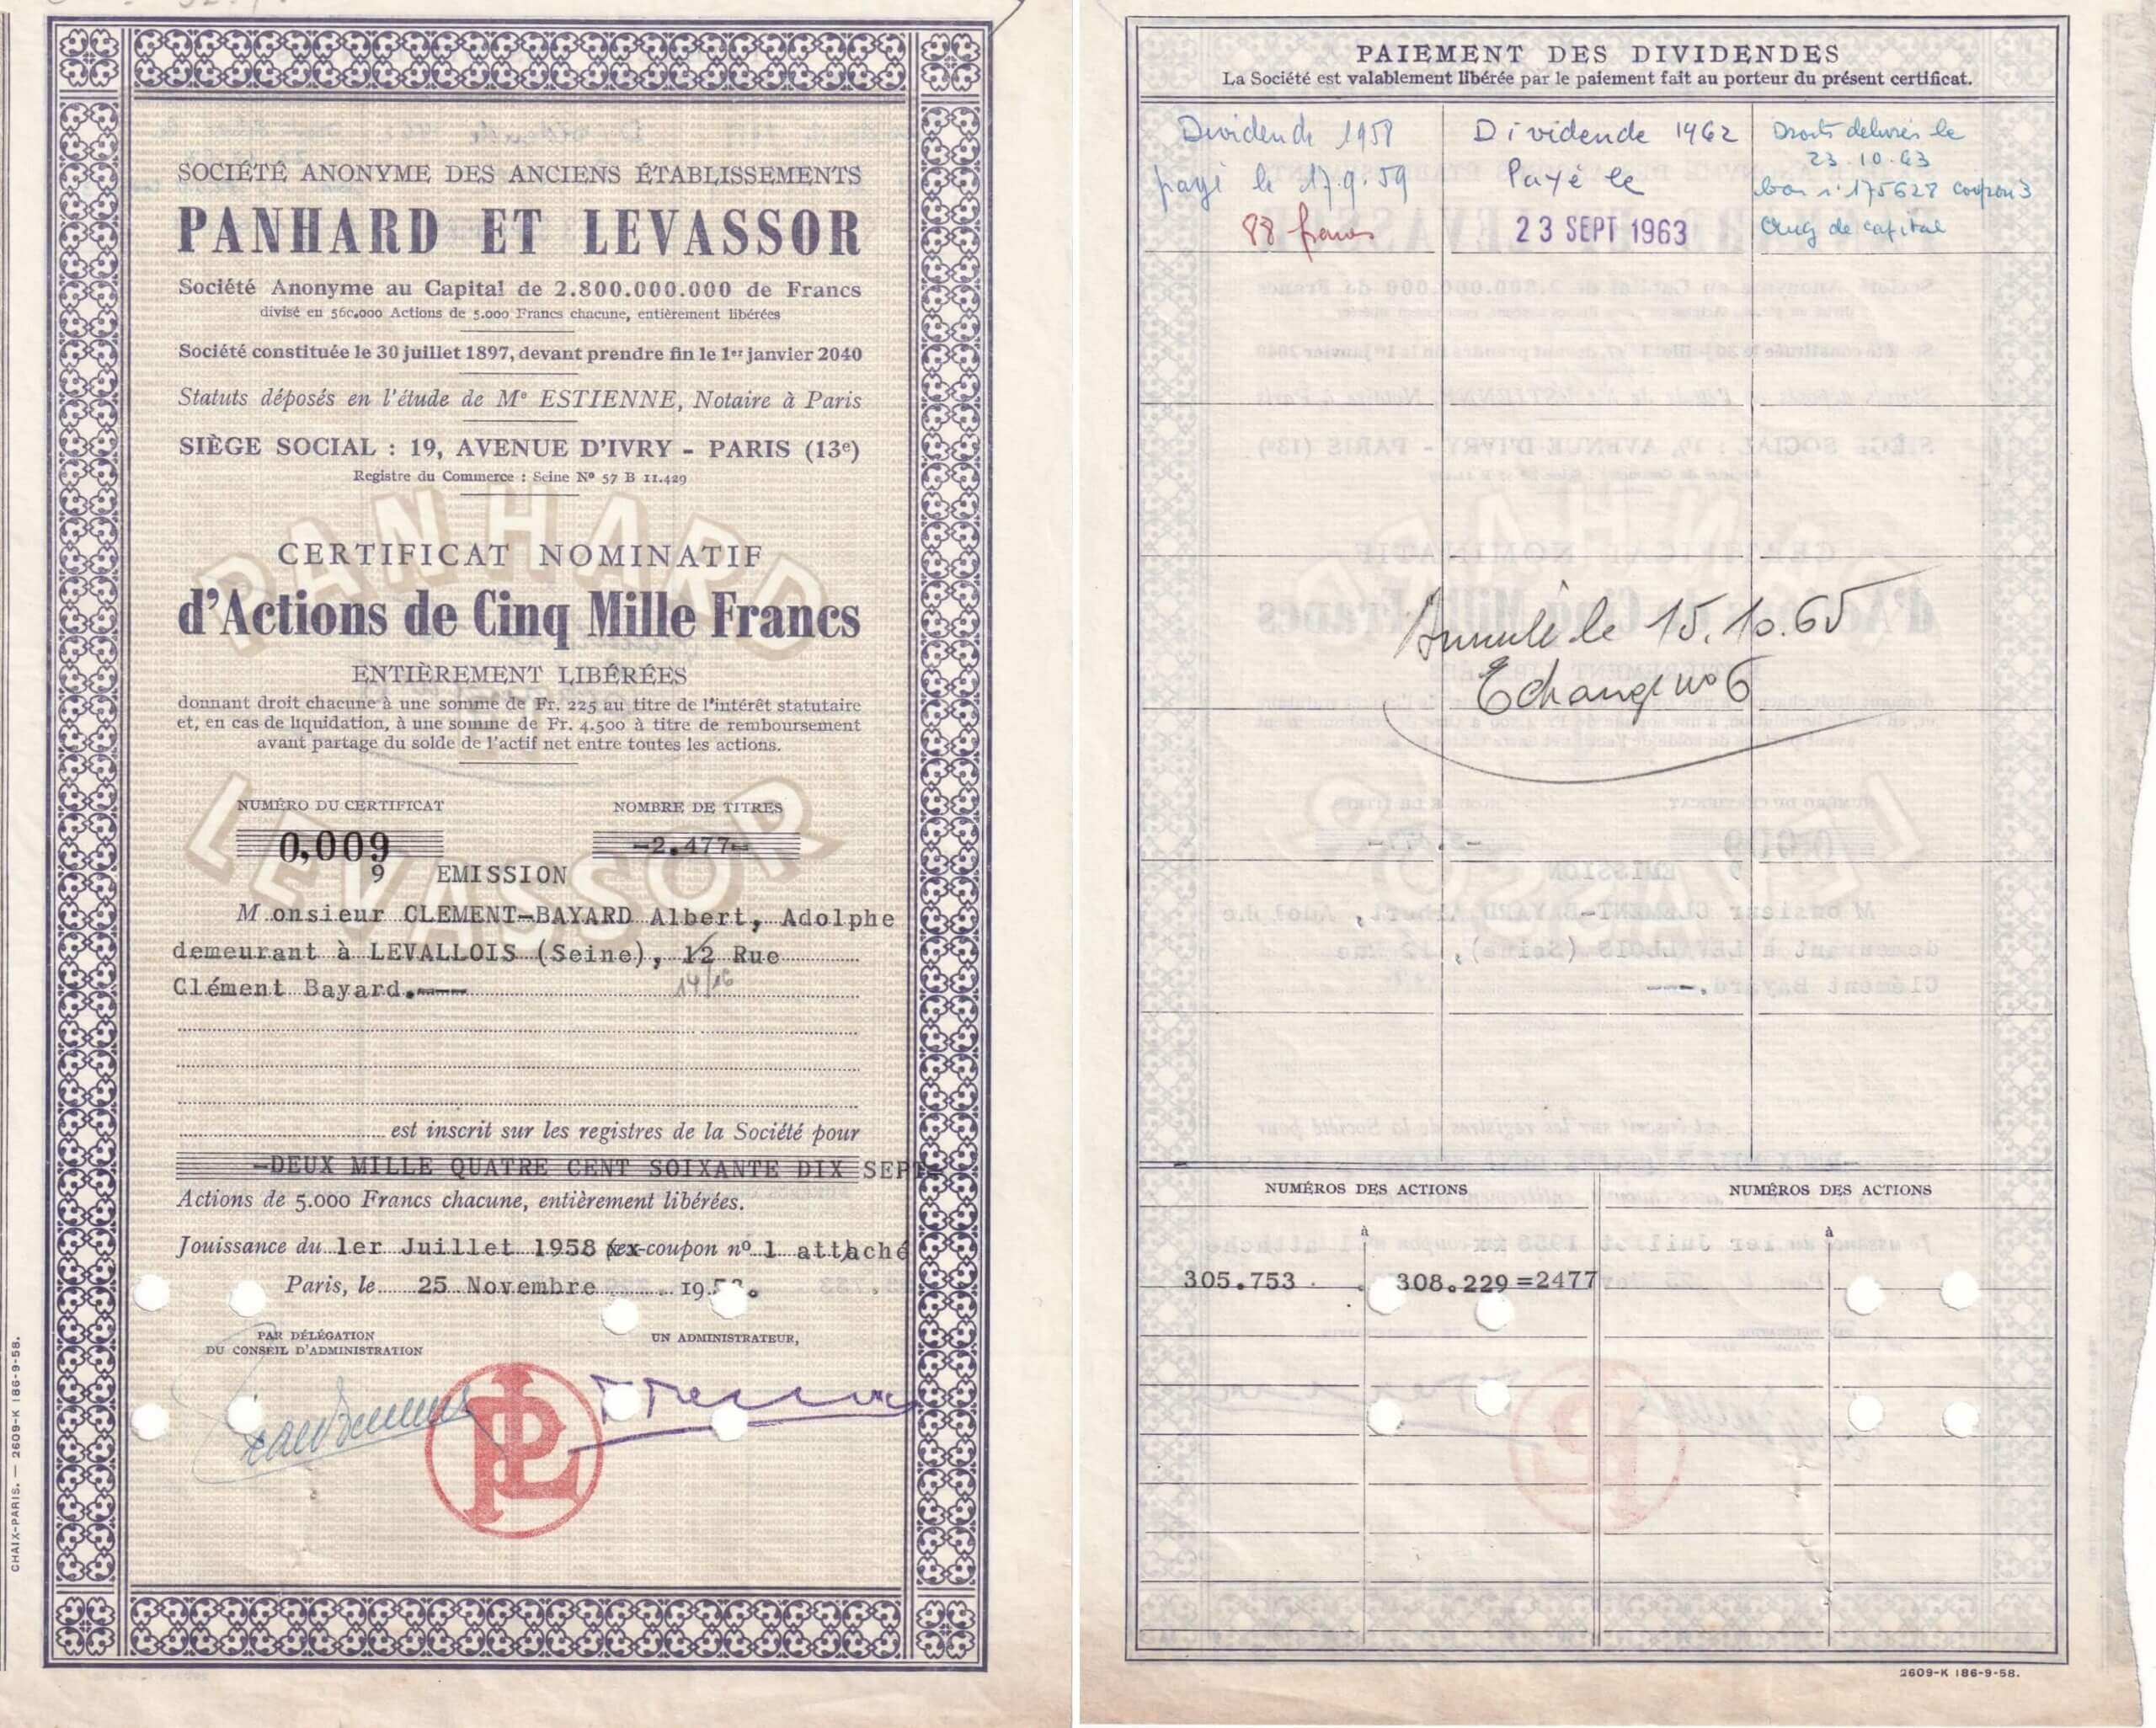 SOCIÉTÉ ANONYME DES ANCIENS ÉTABLISSEMENTS
PANHARD ET LEVASSOR
Société Anonyme au Capital de 2.800.000.000 de Francs
divisé en 560.000 Actions de 5.000 Francs chacune, entièrement libérées
Société constituée le 30 juillet 1897, devant prendre fin le 1er janvier 2040
Statuts déposés en l'étude de Me ESTIENNE, Notaire à Paris
SIÈGE SOCIAL : 19, AVENUE D'IVRY - PARIS (13e)
Registre du Commerce : Seine No 57 B 11.429
PANHARD
CERTIFICAT NOMINATIF
d'Actions de Cinq Mille Francs
ENTIÈREMENT LIBÉRÉES
donnant droit chacune à une somme de Fr. 225 au titre de l'intérêt statutaire
et, en cas de liquidation, à une somme de Fr. 4.500 à titre de remboursement
avant partage du solde de l'actif net entre toutes les actions.
LEVASSOR
NUMÉRO DU CERTIFICAT NOMBRE DE TITRES
0,009 -2.477-
9 EMISSION
Monsieur CLEMENT-BAYARD Albert, Adolphe
demeurant à LEVALLOIS (Seine), 12 Rue
Clément Bayard.--- 14/16
est inscrit sur les registres de la Société pour
-DEUX MILLE QUATRE CENT SOIXANTE DIX SEPT-
Actions de 5.000 Francs chacune, entièrement libérées.
Jouissance du 1er Juillet 1958 (ex-coupon no 1 attaché
Paris, le 25 Novembre 195
PAR DÉLÉGATION
DU CONSEIL D'ADMINISTRATION
UN ADMINISTRATEUR,
PL
CHAIX-PARIS. — 2609-K 186-9-58.
PAIEMENT DES DIVIDENDES
La Société est valablement libérée par le paiement fait au porteur du présent certificat.
Dividende 1958
payé le 17.9.59
88 francs
Dividende 1962
Payé le
23 SEPT 1963
Droits délivrés le
23.10.63
bon n° 175628 coupon 3
Aug de capital
Annulé le 15.10.65
Echange no 6
NUMÉROS DES ACTIONS NUMÉROS DES ACTIONS
à à
305.753 308.229 =2477
2609-K 186-9-58.